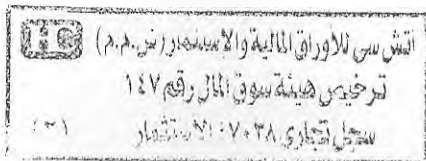 HC
اتش سى للاوراق المالية والاستثمار (ش.م.م)
ترخيص هيئة سوق المال رقم ١٤٧
سجل تجارى ٧٠٣٨ الاستثمار